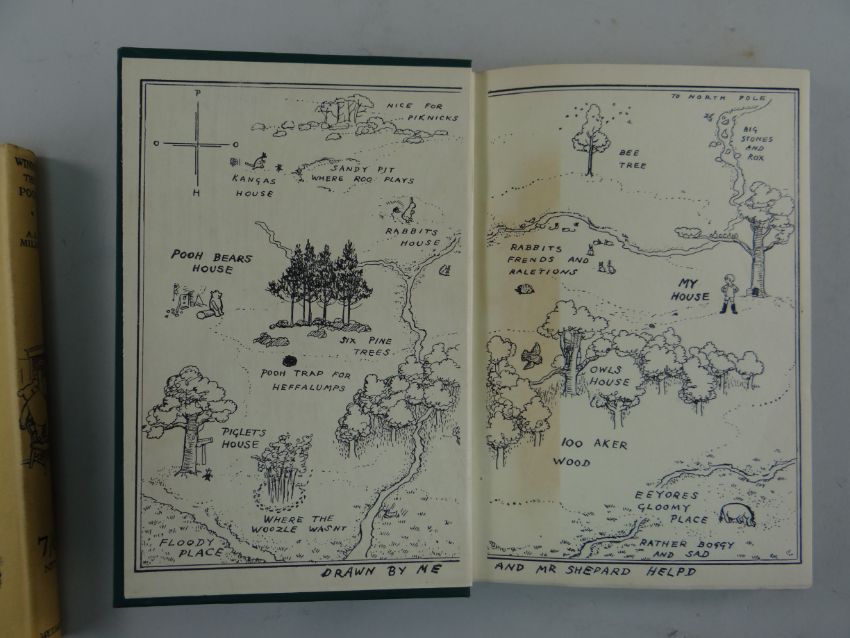 WINN
THE
POO
A.A
MILN
7/
NET
P
O
O
H
NICE FOR
PIKNICKS
KANGAS
HOUSE
SANDY PIT
WHERE ROO PLAYS
RABBITS
HOUSE
POOH BEARS
HOUSE
SIX PINE
TREES
POOH TRAP FOR
HEFFALUMPS
PIGLETS
HOUSE
WHERE THE
WOOZLE WASNT
FLOODY
PLACE
DRAWN BY ME
TO NORTH POLE
BIG
STONES
AND
ROX
BEE
TREE
RABBITS
FRENDS AND
RALETIONS
MY
HOUSE
OWLS
HOUSE
100 AKER
WOOD
EEYORES
GLOOMY
PLACE
RATHER BOGGY
AND SAD
AND MR SHEPARD HELPD